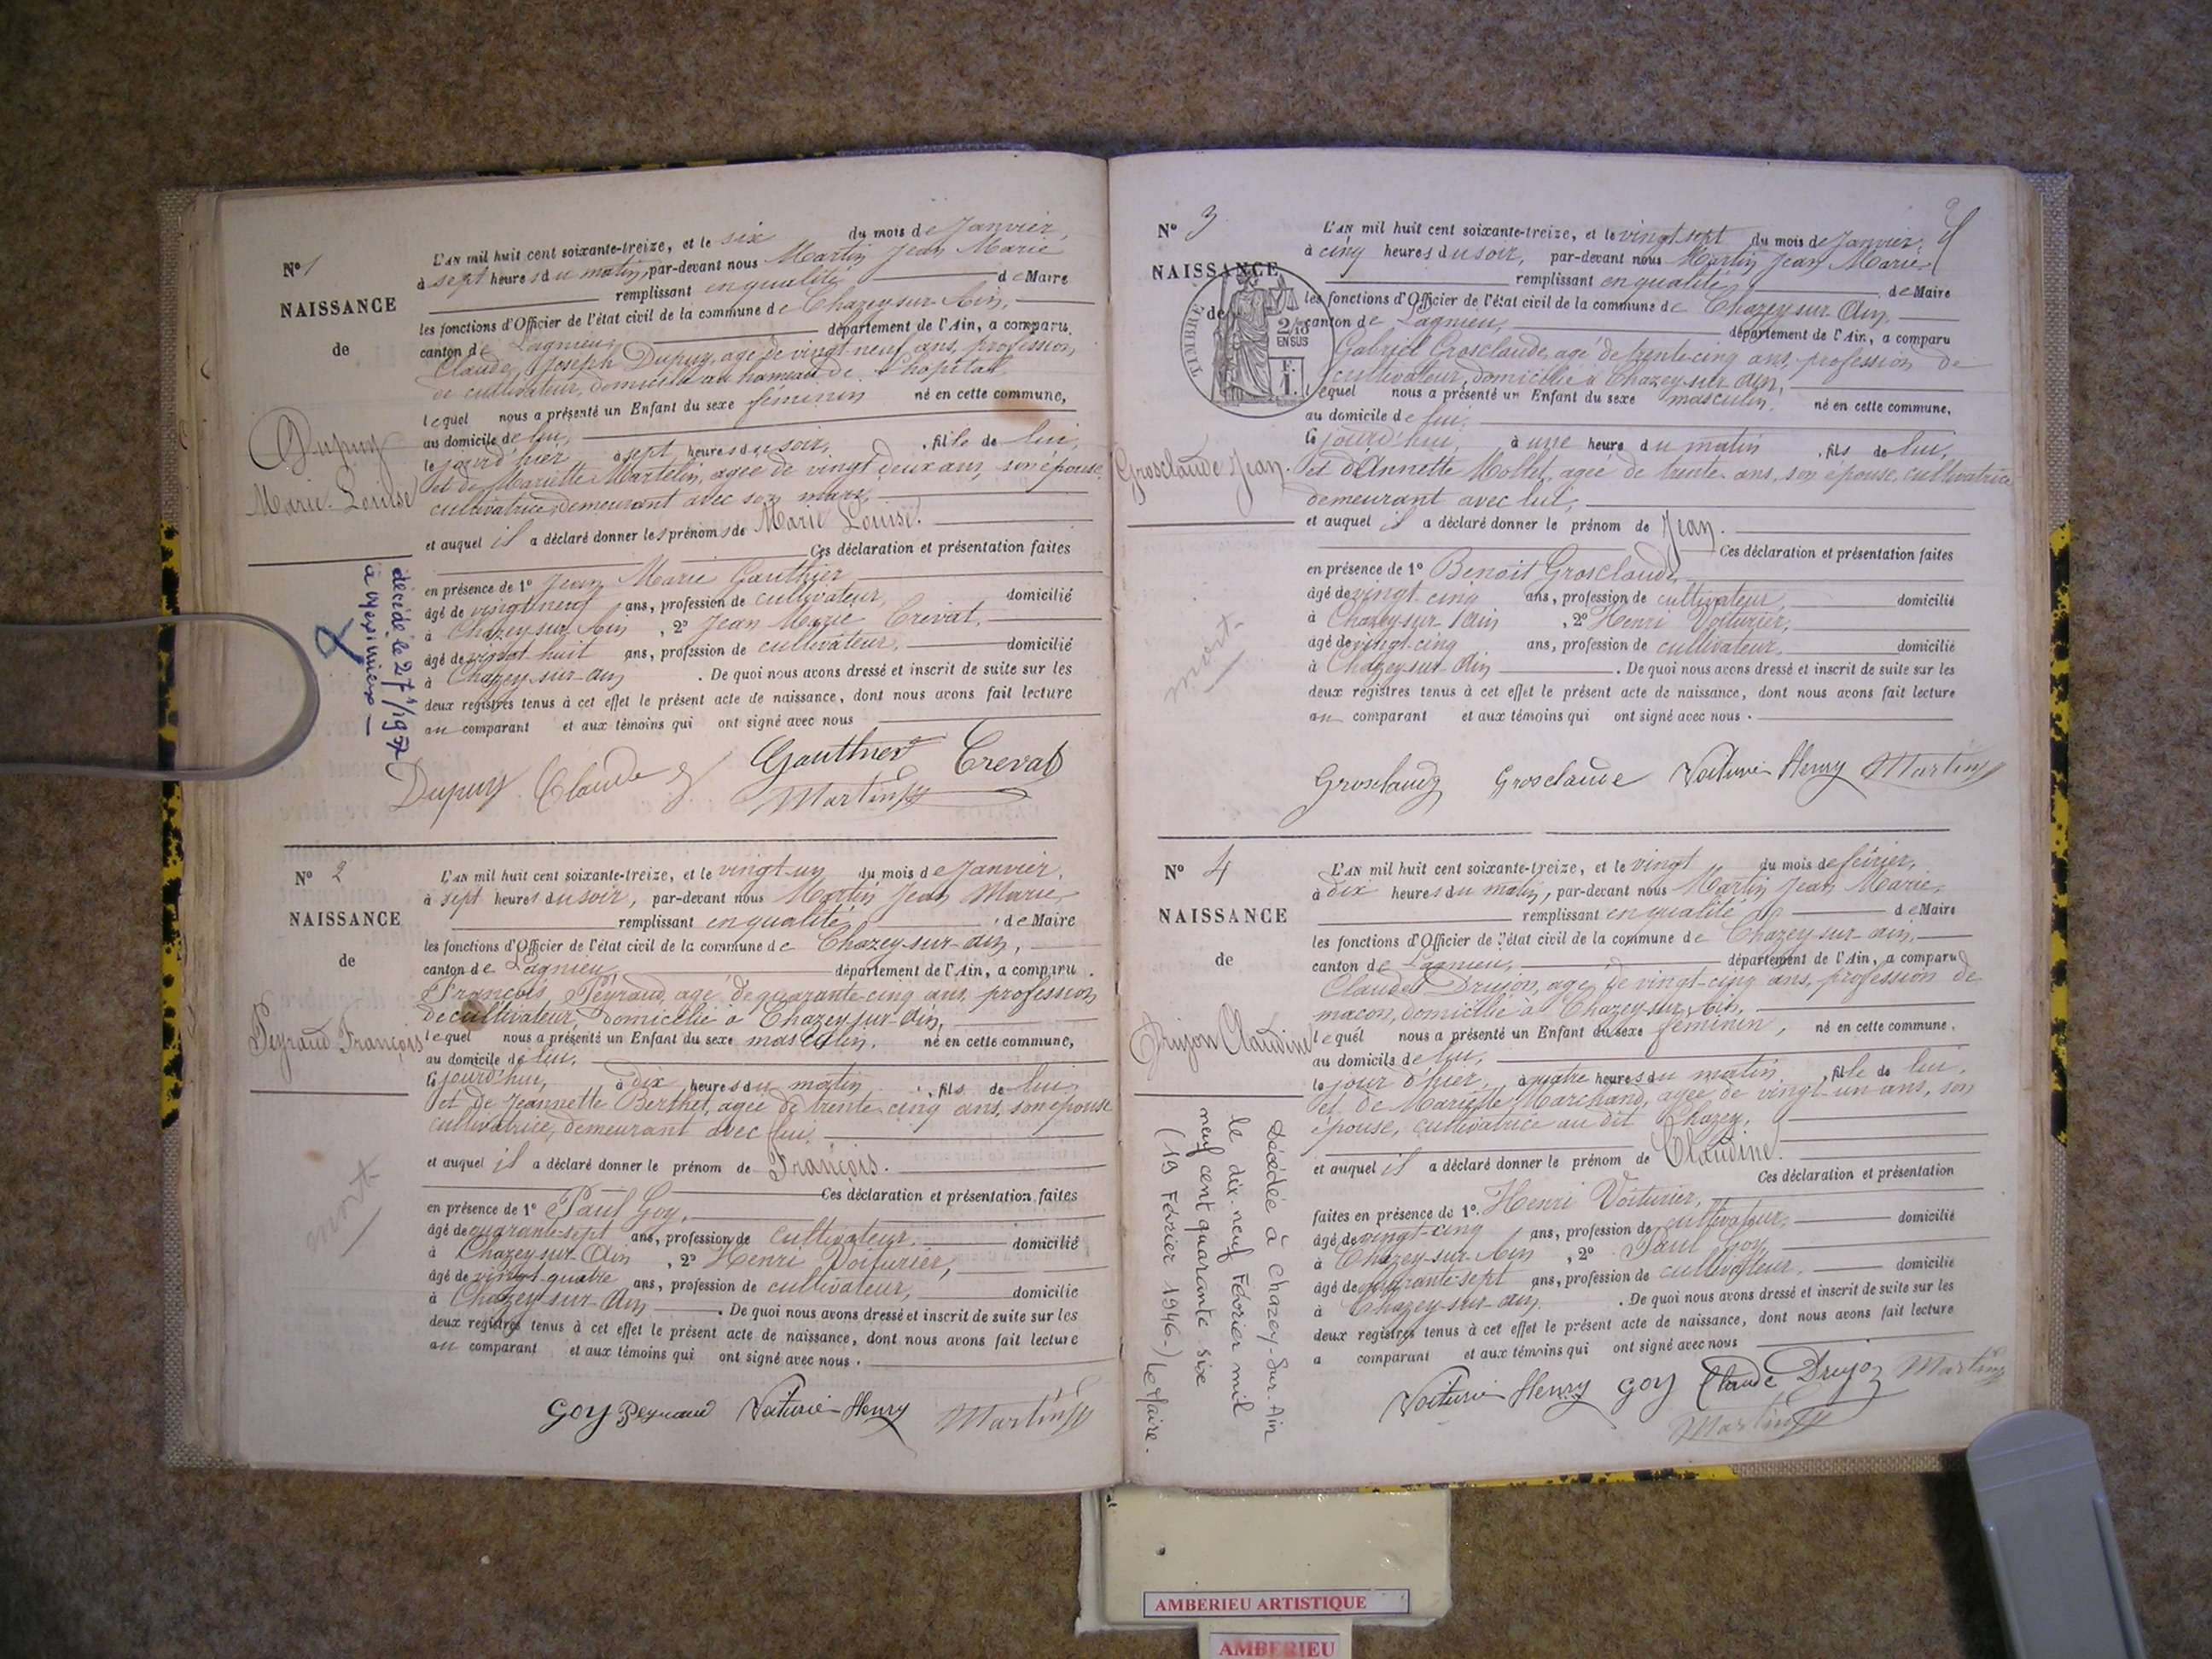 N° 1
NAISSANCE
de
Dupuy
Marie Louise
décédé le 27/4/1957
à Meximieux —
L'AN mil huit cent soixante-treize, et le six du mois de Janvier,
à sept heures du matin, par-devant nous Martin Jean Marie
remplissant en qualité de Maire
les fonctions d'Officier de l'état civil de la commune de Chazey-sur-Ain,
canton de Lagnieu, département de l'Ain, a comparu
Claude Joseph Dupuy, agé de vingt neuf ans, profession
de cultivateur, domicilié au hameau de l'hôpital
lequel nous a présenté un Enfant du sexe féminin né en cette commune,
au domicile de lui,
le jourd'hier à sept heures du soir, fille de lui,
et de Mariette Martelin, agée de vingt deux ans, son épouse,
cultivatrice, demeurant avec son mari,
et auquel il a déclaré donner les prénoms de Marie Louise.
Ces déclaration et présentation faites
en présence de 1° Jean Marie Gauthier
âgé de vingt neuf ans, profession de cultivateur, domicilié
à Chazey-sur-Ain, 2° Jean Marie Crevat,
âgé de vingt huit ans, profession de cultivateur, domicilié
à Chazey-sur-ain. De quoi nous avons dressé et inscrit de suite sur les
deux registres tenus à cet effet le présent acte de naissance, dont nous avons fait lecture
au comparant et aux témoins qui ont signé avec nous
Dupuy Claude Gauthier Crevat
Martin
N° 2
NAISSANCE
de
Peyraud François
mort
L'AN mil huit cent soixante-treize, et le vingt-un du mois de Janvier,
à sept heures du soir, par-devant nous Martin Jean Marie
remplissant en qualité de Maire
les fonctions d'Officier de l'état civil de la commune de Chazey-sur-ain,
canton de Lagnieu département de l'Ain, a comparu.
François Peyraud, agé de quarante-cinq ans, profession
de cultivateur, domicilié à Chazey-sur-Ain,
lequel nous a présenté un Enfant du sexe masculin, né en cette commune,
au domicile de lui,
le jourd'hui, à dix heures du matin, fils de lui,
et de Jeannette Berthet, agée de trente cinq ans, son épouse
cultivatrice, demeurant avec lui,
et auquel il a déclaré donner le prénom de François.
Ces déclaration et présentation faites
en présence de 1° Paul Goy,
âgé de quarante-sept ans, profession de cultivateur, domicilié
à Chazey-sur-Ain, 2° Henri Voiturier,
âgé de vingt-quatre ans, profession de cultivateur, domicilié
à Chazey-sur-Ain. De quoi nous avons dressé et inscrit de suite sur les
deux registres tenus à cet effet le présent acte de naissance, dont nous avons fait lecture
au comparant et aux témoins qui ont signé avec nous.
Goy Peyraud Voiturier Henry Martin
N° 3
NAISSANCE
de
TIMBRE
2/10
EN SUS
F.
1.
Grosclaude Jean.
mort
L'AN mil huit cent soixante-treize, et le vingt sept du mois de Janvier,
à cinq heures du soir, par-devant nous Martin Jean Marie
remplissant en qualité de Maire
les fonctions d'Officier de l'état civil de la commune de Chazey-sur-Ain,
canton de Lagnieu, département de l'Ain, a comparu
Gabriel Grosclaude, agé de trente-cinq ans, profession de
cultivateur, domicilié à Chazey-sur-Ain,
lequel nous a présenté un Enfant du sexe masculin, né en cette commune,
au domicile de lui,
le jourd'hui, à une heure du matin, fils de lui,
et d'Annette Mollet, agée de trente ans, son épouse, cultivatrice
demeurant avec lui,
et auquel il a déclaré donner le prénom de Jean.
Ces déclaration et présentation faites
en présence de 1° Benoit Grosclaude
âgé de vingt-cinq ans, profession de cultivateur, domicilié
à Chazey-sur-Ain, 2° Henri Voiturier,
âgé de vingt-cinq ans, profession de cultivateur, domicilié
à Chazey-sur-Ain. De quoi nous avons dressé et inscrit de suite sur les
deux registres tenus à cet effet le présent acte de naissance, dont nous avons fait lecture
au comparant et aux témoins qui ont signé avec nous.
Grosclaude Grosclaude Voiturier Henry Martin
N° 4
NAISSANCE
de
Drujon Claudine
Décédée à Chazey-Sur-Ain
le dix-neuf Février mil
neuf cent quarante six
(19 Février 1946-) Le Maire.
L'AN mil huit cent soixante-treize, et le vingt du mois de février,
à dix heures du matin, par-devant nous Martin Jean Marie,
remplissant en qualité de Maire
les fonctions d'Officier de l'état civil de la commune de Chazey-sur-ain,
canton de Lagnieu, département de l'Ain, a comparu
Claude Drujon, agé de vingt-cinq ans, profession de
maçon, domicilié à Chazey-sur-Ain,
lequel nous a présenté un Enfant du sexe féminin, né en cette commune,
au domicile de lui,
le jour d'hier, à quatre heures du matin, fille de lui,
et de Mariette Marchand, agée de vingt-un ans, son
épouse, cultivatrice au dit Chazey,
et auquel il a déclaré donner le prénom de Claudine.
Ces déclaration et présentation
faites en présence de 1°. Henri Voiturier,
âgé de vingt-cinq ans, profession de cultivateur, domicilié
à Chazey-sur-Ain, 2° Paul Goy,
âgé de quarante-sept ans, profession de cultivateur, domicilié
à Chazey-sur-ain. De quoi nous avons dressé et inscrit de suite sur les
deux registres tenus à cet effet le présent acte de naissance, dont nous avons fait lecture
a comparant et aux témoins qui ont signé avec nous
Voiturier Henry Goy Claude Drujon Martin
Martin
AMBERIEU ARTISTIQUE
AMBERIEU